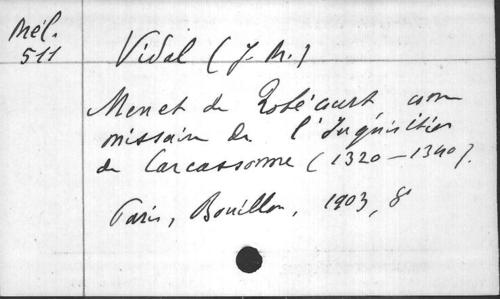 Mél.
511
Vidal (J. M.)
Menet de Robécourt, com
missaire de l'Inquisition
de Carcassonne (1320-1340).
Paris, Bouillon, 1903, 8°